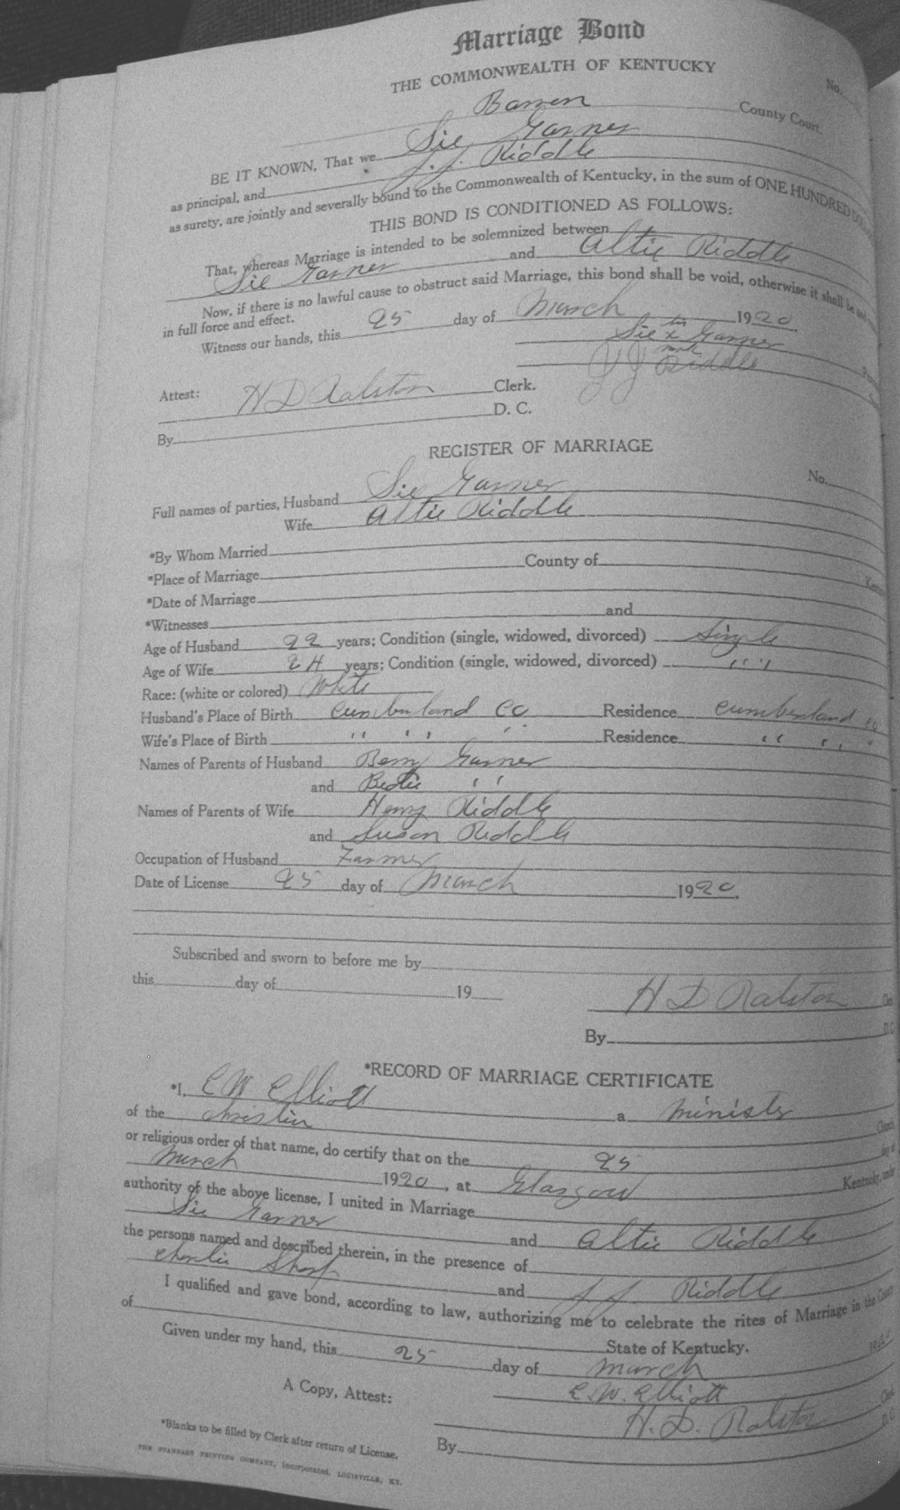 Marriage Bond
THE COMMONWEALTH OF KENTUCKY
No.
Barren County Court.
BE IT KNOWN, That we Sie Garner
as principal, and J. J. Riddle
as surety, are jointly and severally bound to the Commonwealth of Kentucky, in the sum of ONE HUNDRED
THIS BOND IS CONDITIONED AS FOLLOWS:
That, whereas Marriage is intended to be solemnized between
Sie Garner and Altie Riddle
Now, if there is no lawful cause to obstruct said Marriage, this bond shall be void, otherwise it shall be
in full force and effect.
Witness our hands, this 25 day of March 1920
Sie his x mark Garner
J J Riddle
Attest: H D Ralston Clerk.
By D. C.
REGISTER OF MARRIAGE
No.
Full names of parties, Husband Sie Garner
Wife Altie Riddle
*By Whom Married
*Place of Marriage County of
*Date of Marriage
*Witnesses and
Age of Husband 22 years; Condition (single, widowed, divorced) Single
Age of Wife 24 years; Condition (single, widowed, divorced) " "
Race: (white or colored) White
Husband's Place of Birth Cumberland Co Residence Cumberland Co
Wife's Place of Birth " " " Residence " " "
Names of Parents of Husband Berry Garner
and Bettie "
Names of Parents of Wife Henry Riddle
and Susan Riddle
Occupation of Husband Farmer
Date of License 25 day of March 1920.
Subscribed and sworn to before me by
this day of 19
H D Ralston
By D.C.
*RECORD OF MARRIAGE CERTIFICATE
*I, C W Elliott a Minister
of the Christian Church,
or religious order of that name, do certify that on the 25 day of
March 1920, at Glasgow Kentucky, under
authority of the above license, I united in Marriage
Sie Garner and Altie Riddle
the persons named and described therein, in the presence of
Charlie Short and J J Riddle
I qualified and gave bond, according to law, authorizing me to celebrate the rites of Marriage in the County
of State of Kentucky.
Given under my hand, this 25 day of March 1920
C. W. Elliott
A Copy, Attest: H. D. Ralston Clerk
By D.C.
*Blanks to be filled by Clerk after return of License.
THE STANDARD PRINTING COMPANY, Incorporated, LOUISVILLE, KY.